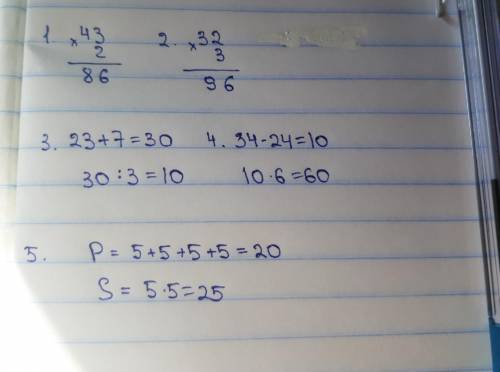 1. × 43 2. × 32
2 3
86 96
3. 23+7=30 4. 34-24=10
30:3=10 10·6=60
5. P = 5+5+5+5=20
S = 5·5=25